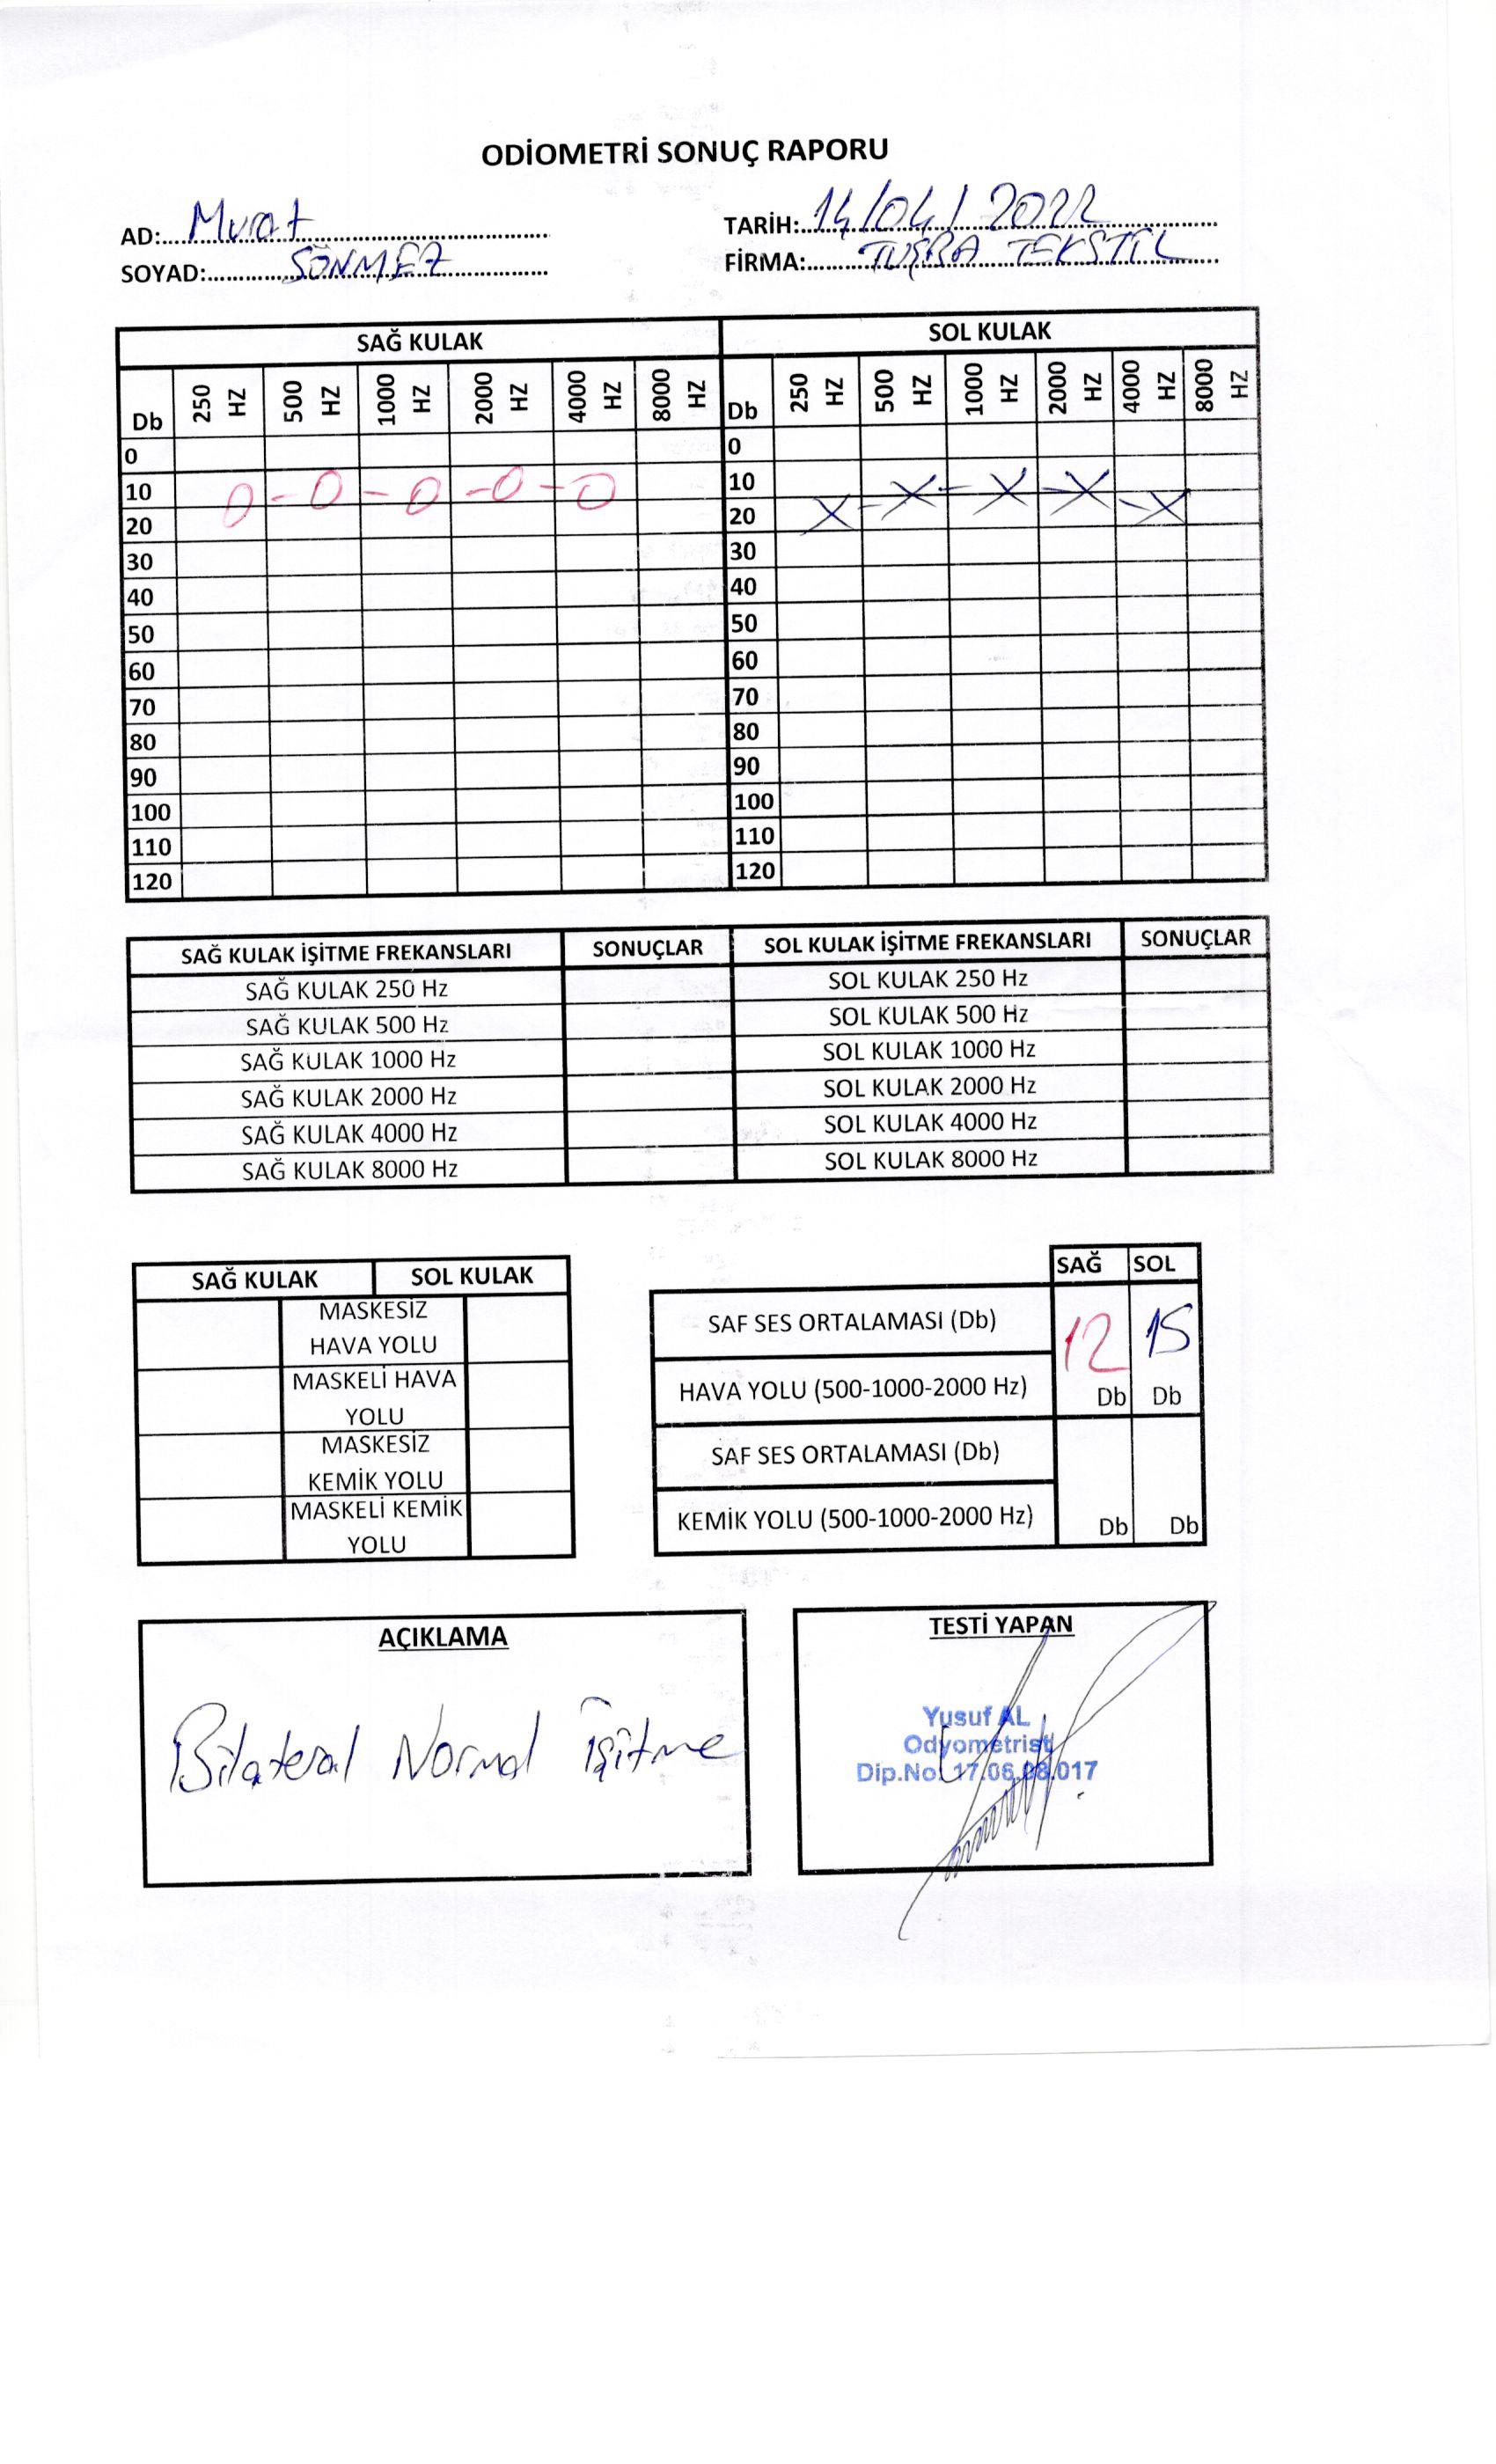 ODİOMETRİ SONUÇ RAPORU
AD: Murat TARİH: 14/04/2022
SOYAD: SÖNMEZ FİRMA: TUĞRA TEKSTİL
SAĞ KULAK SOL KULAK
Db 250 HZ 500 HZ 1000 HZ 2000 HZ 4000 HZ 8000 HZ Db 250 HZ 500 HZ 1000 HZ 2000 HZ 4000 HZ 8000 HZ
0 0
10 0 - 0 - 0 - 0 - 0 10 X - X - X - X - X
20 20
30 30
40 40
50 50
60 60
70 70
80 80
90 90
100 100
110 110
120 120
SAĞ KULAK İŞİTME FREKANSLARI SONUÇLAR SOL KULAK İŞİTME FREKANSLARI SONUÇLAR
SAĞ KULAK 250 Hz SOL KULAK 250 Hz
SAĞ KULAK 500 Hz SOL KULAK 500 Hz
SAĞ KULAK 1000 Hz SOL KULAK 1000 Hz
SAĞ KULAK 2000 Hz SOL KULAK 2000 Hz
SAĞ KULAK 4000 Hz SOL KULAK 4000 Hz
SAĞ KULAK 8000 Hz SOL KULAK 8000 Hz
SAĞ KULAK SOL KULAK
MASKESİZ
HAVA YOLU
MASKELİ HAVA
YOLU
MASKESİZ
KEMİK YOLU
MASKELİ KEMİK
YOLU
SAĞ SOL
SAF SES ORTALAMASI (Db) 12 15
HAVA YOLU (500-1000-2000 Hz) Db Db
SAF SES ORTALAMASI (Db)
KEMİK YOLU (500-1000-2000 Hz) Db Db
AÇIKLAMA
Bilateral Normal İşitme
TESTİ YAPAN
Yusuf AL
Odyometrist
Dip.No: 17.06.08.017